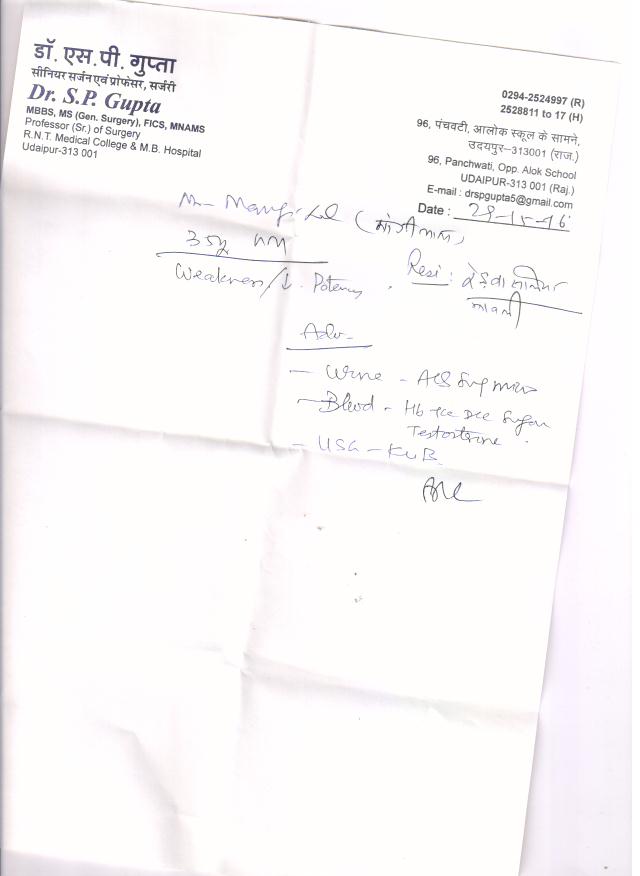 डॉ. एस.पी. गुप्ता
सीनियर सर्जन एवं प्रोफेसर, सर्जरी
Dr. S.P. Gupta
MBBS, MS (Gen. Surgery), FICS, MNAMS
Professor (Sr.) of Surgery
R.N.T. Medical College & M.B. Hospital
Udaipur-313 001
0294-2524997 (R)
2528811 to 17 (H)
96, पंचवटी, आलोक स्कूल के सामने,
उदयपुर–313001 (राज.)
96, Panchwati, Opp. Alok School
UDAIPUR-313 001 (Raj.)
E-mail : drspgupta5@gmail.com
Date :
Weakness/↓. Potency
Resi :
Adv-
- Urine -
- Blood - Hb Tce Dce Sugar
Testosterone
- USG - KUB